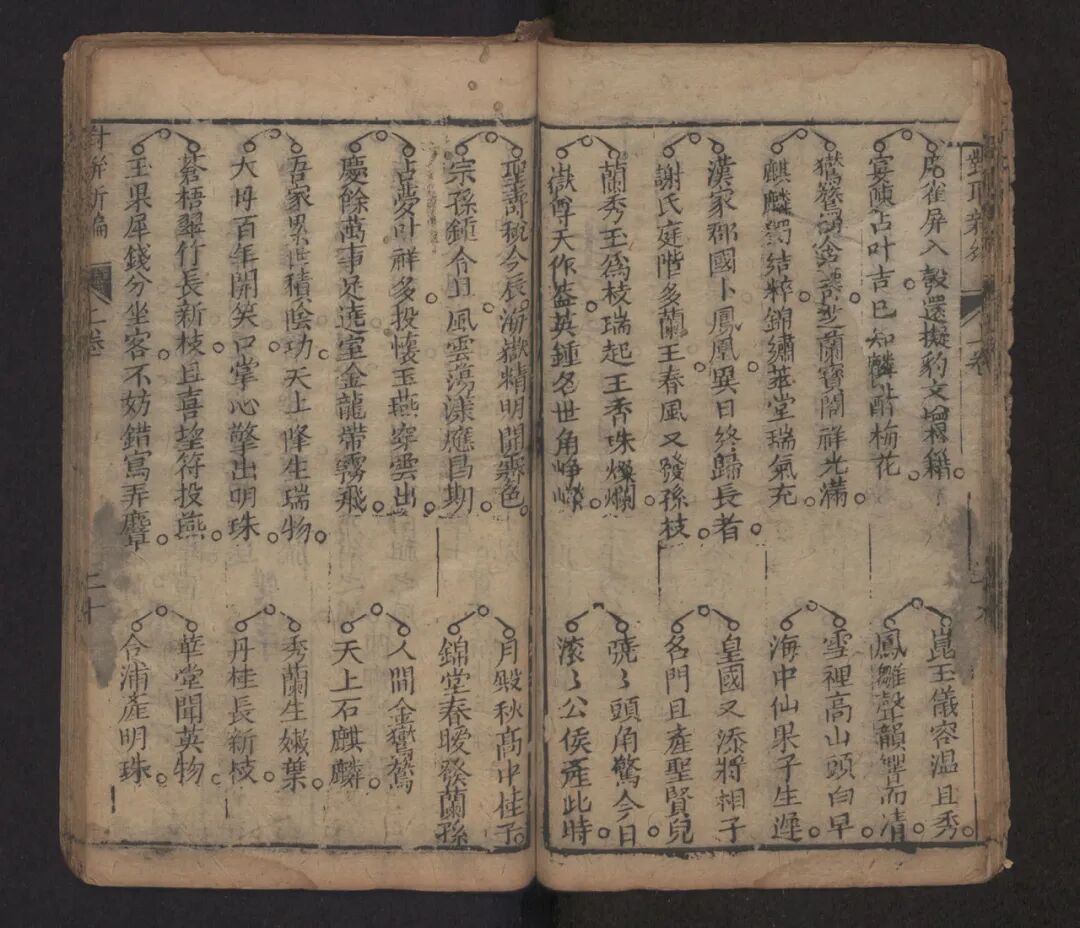 雀屏入彀還擬豹文增
占叶吉已知麟梅花
芝蘭寶閣祥光滿
麒麟結粹錦繡華堂瑞氣充
漢家郡國卜鳳凰異日終歸長者
謝氏庭階多蘭王春風又發孫枝
蘭秀玉爲枝瑞起王香珠燦爛
嶽尊天作蓋英鍾名世角崢嶸
崑玉儀容温且秀
鳳雛聲韻響而清
雪裡高山頭白早
海中仙果子生遲
皇國又添將相子
名門且產聖賢兒
頭角驚今日
滚〻公侯産此時
聖壽祝今辰海嶽精明開霽色
宗孫鍾令旦風雲蕩漾應昌期
占夢叶祥多投懷玉燕穿雲出
慶餘萬事足遶室金龍帶霧飛
吾家累世積陰功天上降生瑞物
大母百年開笑口掌心擎出明珠
蒼梧翠竹長新枝且喜符投燕
玉果犀錢分坐客不妨錯寫弄麞
月殿秋高中桂子
錦堂春曖發蘭孫
人間金鸑鷟
天上石麒麟
秀蘭生嫩葉
丹桂長新枝
華堂聞英物
合浦産明珠
新編
二卷
二十